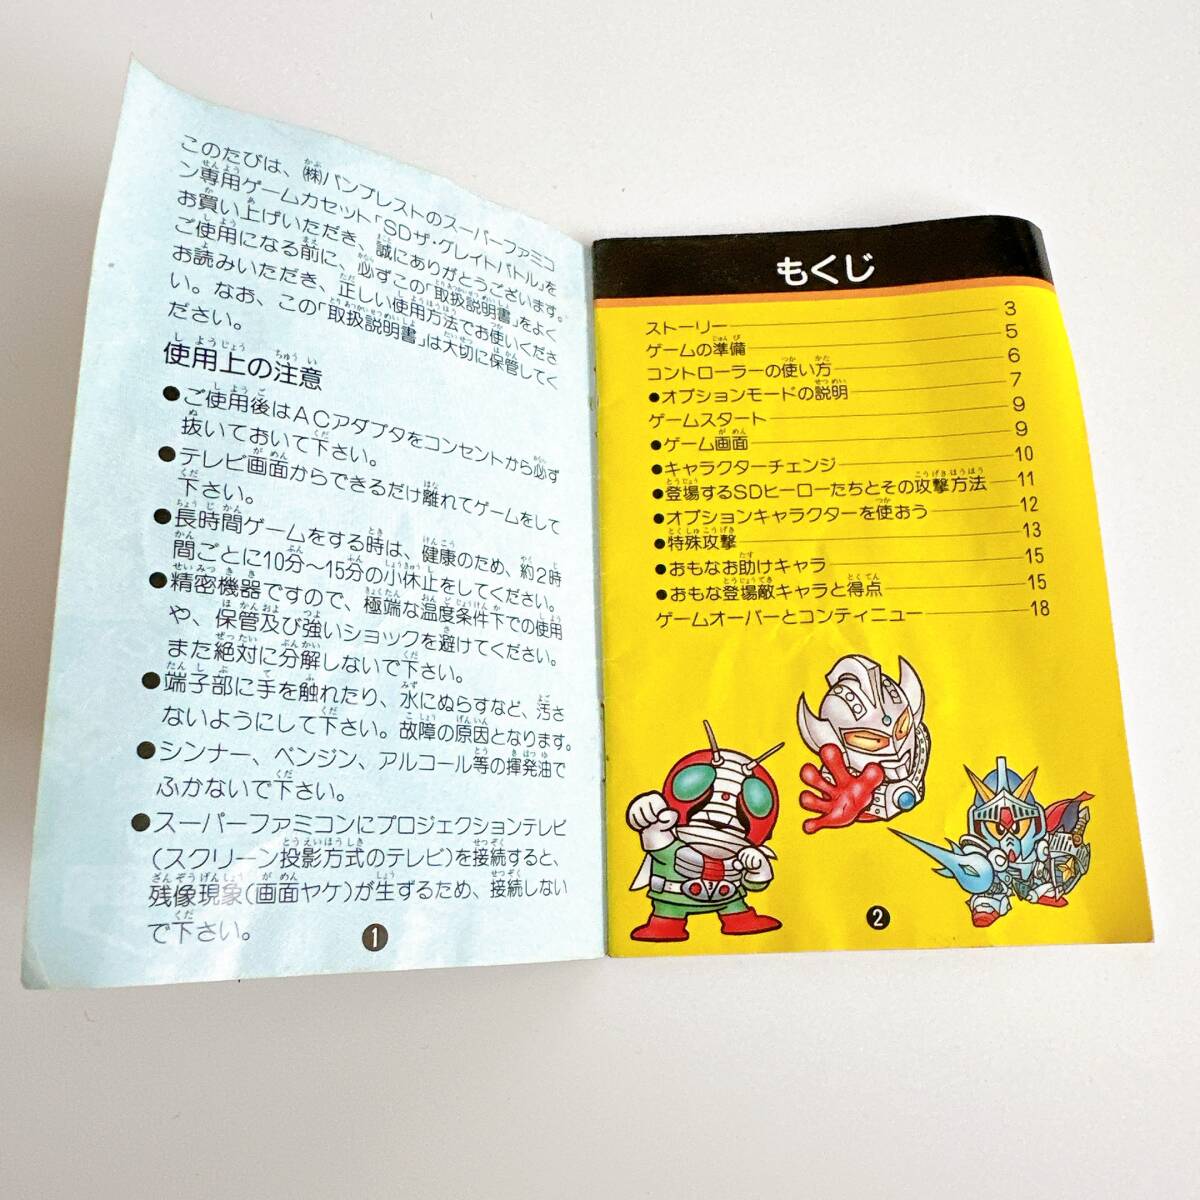 このたびは、㈱バンプレストのスーパーファミコ
ン専用ゲームカセット「SDザ・グレイトバトル」を
お買い上げいただき、誠にありがとうございます。
ご使用になる前に、必ずこの「取扱説明書」をよく
お読みいただき、正しい使用方法でお使いくださ
い。なお、この「取扱説明書」は大切に保管してく
ださい。
使用上の注意
●ご使用後はACアダプタをコンセントから必ず
抜いておいて下さい。
●テレビ画面からできるだけ離れてゲームをして
下さい。
●長時間ゲームをする時は、健康のため、約2時
間ごとに10分〜15分の小休止をしてください。
●精密機器ですので、極端な温度条件下での使用
や、保管及び強いショックを避けてください。
また絶対に分解しないで下さい。
●端子部に手を触れたり、水にぬらすなど、汚さ
ないようにして下さい。故障の原因となります。
●シンナー、ベンジン、アルコール等の揮発油で
ふかないで下さい。
●スーパーファミコンにプロジェクションテレビ
(スクリーン投影方式のテレビ)を接続すると、
残像現象(画面ヤケ)が生ずるため、接続しない
で下さい。
1
もくじ
ストーリー 3
ゲームの準備 5
コントローラーの使い方 6
●オプションモードの説明 7
ゲームスタート 9
●ゲーム画面 9
●キャラクターチェンジ 10
●登場するSDヒーローたちとその攻撃方法 11
●オプションキャラクターを使おう 12
●特殊攻撃 13
●おもなお助けキャラ 15
●おもな登場敵キャラと得点 15
ゲームオーバーとコンティニュー 18
2